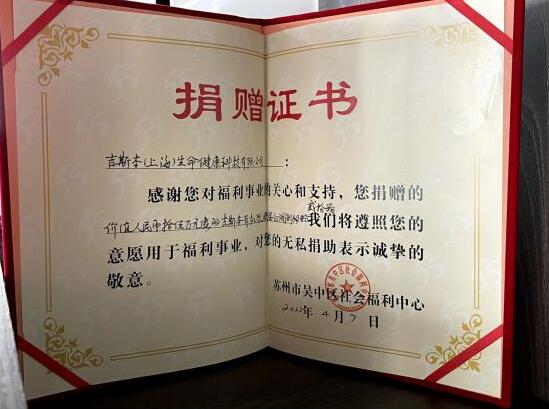 捐赠证书
吉斯本(上海)生命健康科技有限公司:
感谢您对福利事业的关心和支持,您捐赠的
价值人民币拾伍万元 我们将遵照您的
意愿用于福利事业,对您的无私捐助表示诚挚的
敬意。
苏州市吴中区社会福利中心
2022年4月7日